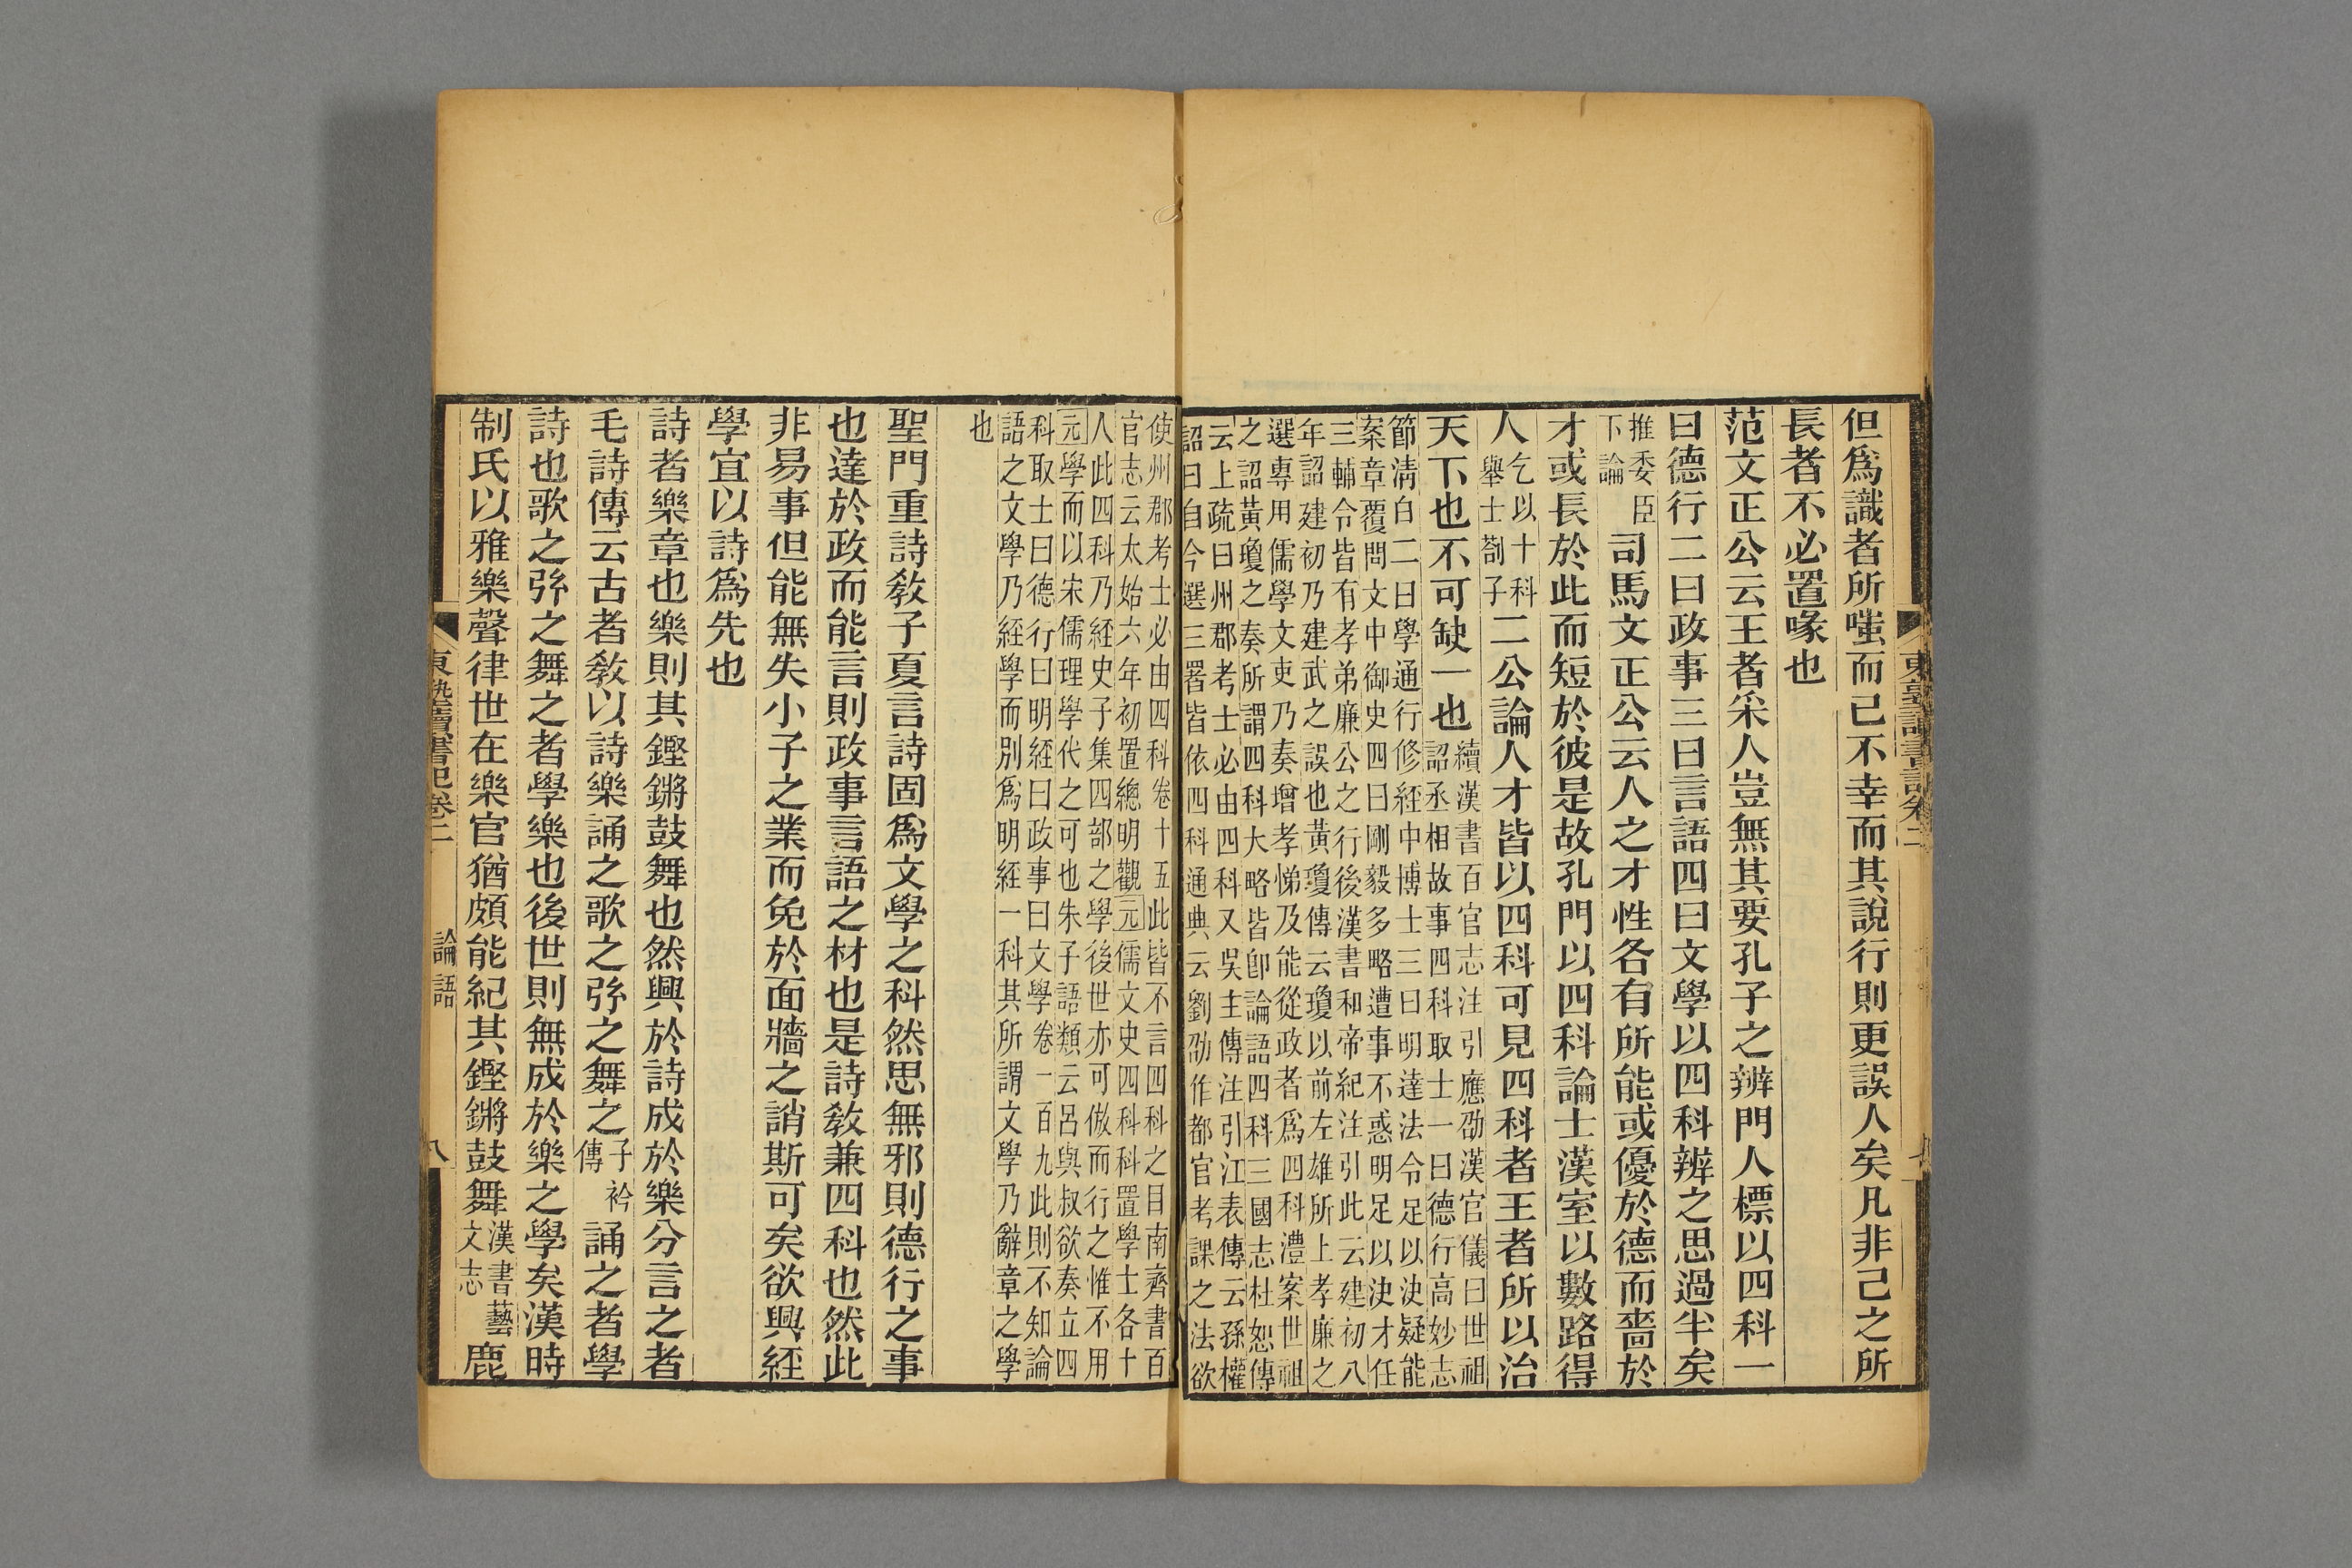 但爲識者所嗤而已不幸而其說行則更誤人矣凡非己之所
長者不必置喙也
范文正公云王者采人豈無其要孔子之辨門人標以四科一
曰德行二曰政事三曰言語四曰文學以四科辨之思過半矣
推委臣
下論
司馬文正公云人之才性各有所能或優於德而嗇於
才或長於此而短於彼是故孔門以四科論士漢室以數路得
人
乞以十科
舉士劄子
二公論人才皆以四科可見四科者王者所以治
天下也不可缺一也
續漢書百官志注引應劭漢官儀曰世祖
詔丞相故事四科取士一曰德行高妙志
節淸白二曰學通行修經中博士三曰明達法令足以決疑能
案章覆問文中御史四曰剛毅多略遭事不惑明足以決才任
三輔令皆有孝弟廉公之行後漢書和帝紀注引此云建初八
年詔建初乃建武之誤也黃瓊傳云瓊以前左雄所上孝廉之
選專用儒學文吏乃奏增孝悌及能從政者爲四科澧案世祖
之詔黃瓊之奏所謂四科大略皆卽論語四科三國志杜恕傳
云上疏曰州郡考士必由四科又吳主傳注引江表傳云孫權
詔曰自今選三署皆依四科通典云劉劭作都官考課之法欲
使州郡考士必由四科卷十五此皆不言四科之目南齊書百
官志云太始六年初置總明觀元儒文史四科科置學士各十
人此四科乃經史子集四部之學後世亦可倣而行之惟不用
元學而以宋儒理學代之可也朱子語類云呂與叔欲奏立四
科取士曰德行曰明經曰政事曰文學卷一百九此則不知論
語之文學乃經學而別爲明經一科其所謂文學乃辭章之學
也
聖門重詩敎子夏言詩固爲文學之科然思無邪則德行之事
也達於政而能言則政事言語之材也是詩敎兼四科也然此
非易事但能無失小子之業而免於面牆之誚斯可矣欲興經
學宜以詩爲先也
詩者樂章也樂則其鏗鏘鼓舞也然興於詩成於樂分言之者
毛詩傳云古者敎以詩樂誦之歌之弦之舞之
子衿
傳
誦之者學
詩也歌之弦之舞之者學樂也後世則無成於樂之學矣漢時
制氏以雅樂聲律世在樂官猶頗能紀其鏗鏘鼓舞
漢書藝
文志
鹿
東塾讀書記卷二
論語
八
東塾讀書記卷二